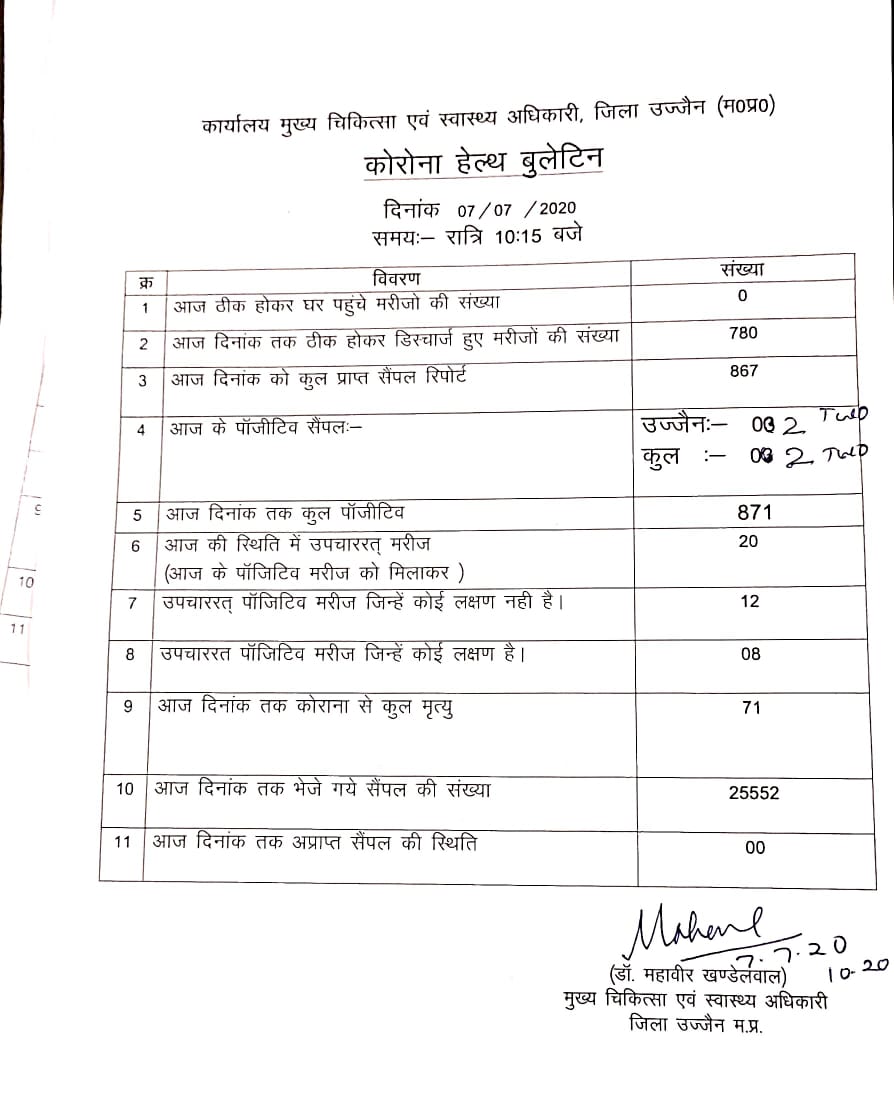 कार्यालय मुख्य चिकित्सा एवं स्वास्थ्य अधिकारी, जिला उज्जैन (म0प्र0)
कोरोना हेल्थ बुलेटिन
दिनांक 07/07 /2020
समयः– रात्रि 10:15 बजे
क्र विवरण संख्या
1 आज ठीक होकर घर पहुंचे मरीजो की संख्या 0
2 आज दिनांक तक ठीक होकर डिस्चार्ज हुए मरीजों की संख्या 780
3 आज दिनांक को कुल प्राप्त सैंपल रिपोर्ट 867
4 आज के पॉजीटिव सैंपलः– उज्जैनः– 0 2 TWO
कुल :– 0 2 TWO
5 आज दिनांक तक कुल पॉजीटिव 871
6 आज की स्थिति में उपचाररत् मरीज 20
(आज के पॉजिटिव मरीज को मिलाकर )
7 उपचाररत् पॉजिटिव मरीज जिन्हें कोई लक्षण नही है। 12
8 उपचाररत पॉजिटिव मरीज जिन्हें कोई लक्षण है। 08
9 आज दिनांक तक कोराना से कुल मृत्यु 71
10 आज दिनांक तक भेजे गये सैंपल की संख्या 25552
11 आज दिनांक तक अप्राप्त सैंपल की स्थिति 00
7.7.20
10-20
(डॉ. महावीर खण्डेलवाल)
मुख्य चिकित्सा एवं स्वास्थ्य अधिकारी
जिला उज्जैन म.प्र.
9
10
11